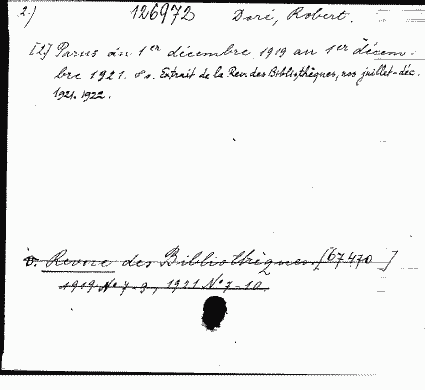 2) 126972 Doré, Robert.
[2] Parus du 1er décembre 1919 au 1er décem-
bre 1921. 8o. Extrait de la Rev. des Bibliothèques, nos juillet-déc.
1921. 1922.
v. Revue des Bibliothèques [67470]
1919 No 7-9, 1921 No 7-10.